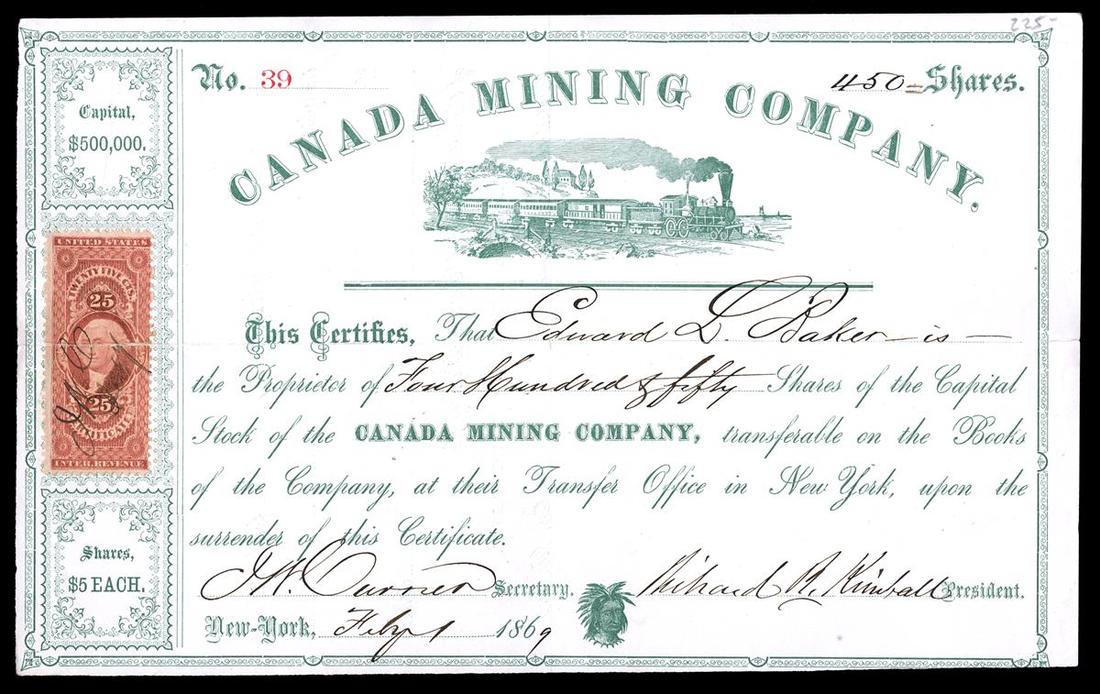 225-
No. 39
450 = Shares.
CANADA MINING COMPANY.
Capital,
$500,000.
UNITED STATES
TWENTY FIVE CTS.
25
25
CERTIFICATE
INTER. REVENUE
Shares,
$5 EACH.
This Certifies, That Edward L. Baker - is -
the Proprietor of Four Hundred & fifty Shares of the Capital
Stock of the CANADA MINING COMPANY, transferable on the Books
of the Company, at their Transfer Office in New York, upon the
surrender of this Certificate.
Secretary. Richard R. Kimball President.
New-York, Feby 1 1869